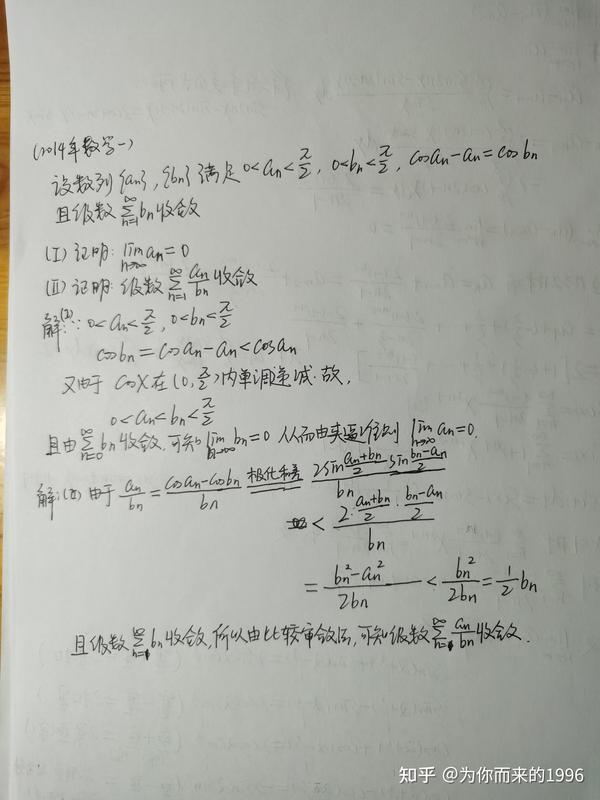 (2014年数学一)
设数列{an}, {bn}满足 0<an<π/2, 0<bn<π/2, cosan-an=cosbn
且级数∑_{n=1}^∞ bn收敛
(I) 证明: lim_{n→∞} an=0
(II) 证明: 级数∑_{n=1}^∞ an/bn 收敛
解:(1) ∵ 0<an<π/2, 0<bn<π/2
cosbn=cosan-an<cosan
又由于 cosX 在(0, π/2)内单调递减. 故,
0<an<bn<π/2
且由∑_{n=0}^∞ bn收敛. 可知 lim_{n→∞} bn=0 从而由夹逼准则 lim_{n→∞} an=0.
解:(2) 由于 an/bn = (cosan-cosbn)/bn 积化和差 (2sin (an+bn)/2 · sin (bn-an)/2)/bn
< (2·(an+bn)/2 · (bn-an)/2)/bn
= (bn²-an²)/2bn < bn²/2bn = 1/2 bn
且级数∑_{n=1}^∞ bn收敛, 所以由比较审敛法, 可知级数∑_{n=1}^∞ an/bn 收敛.
知乎 @为你而来的1996